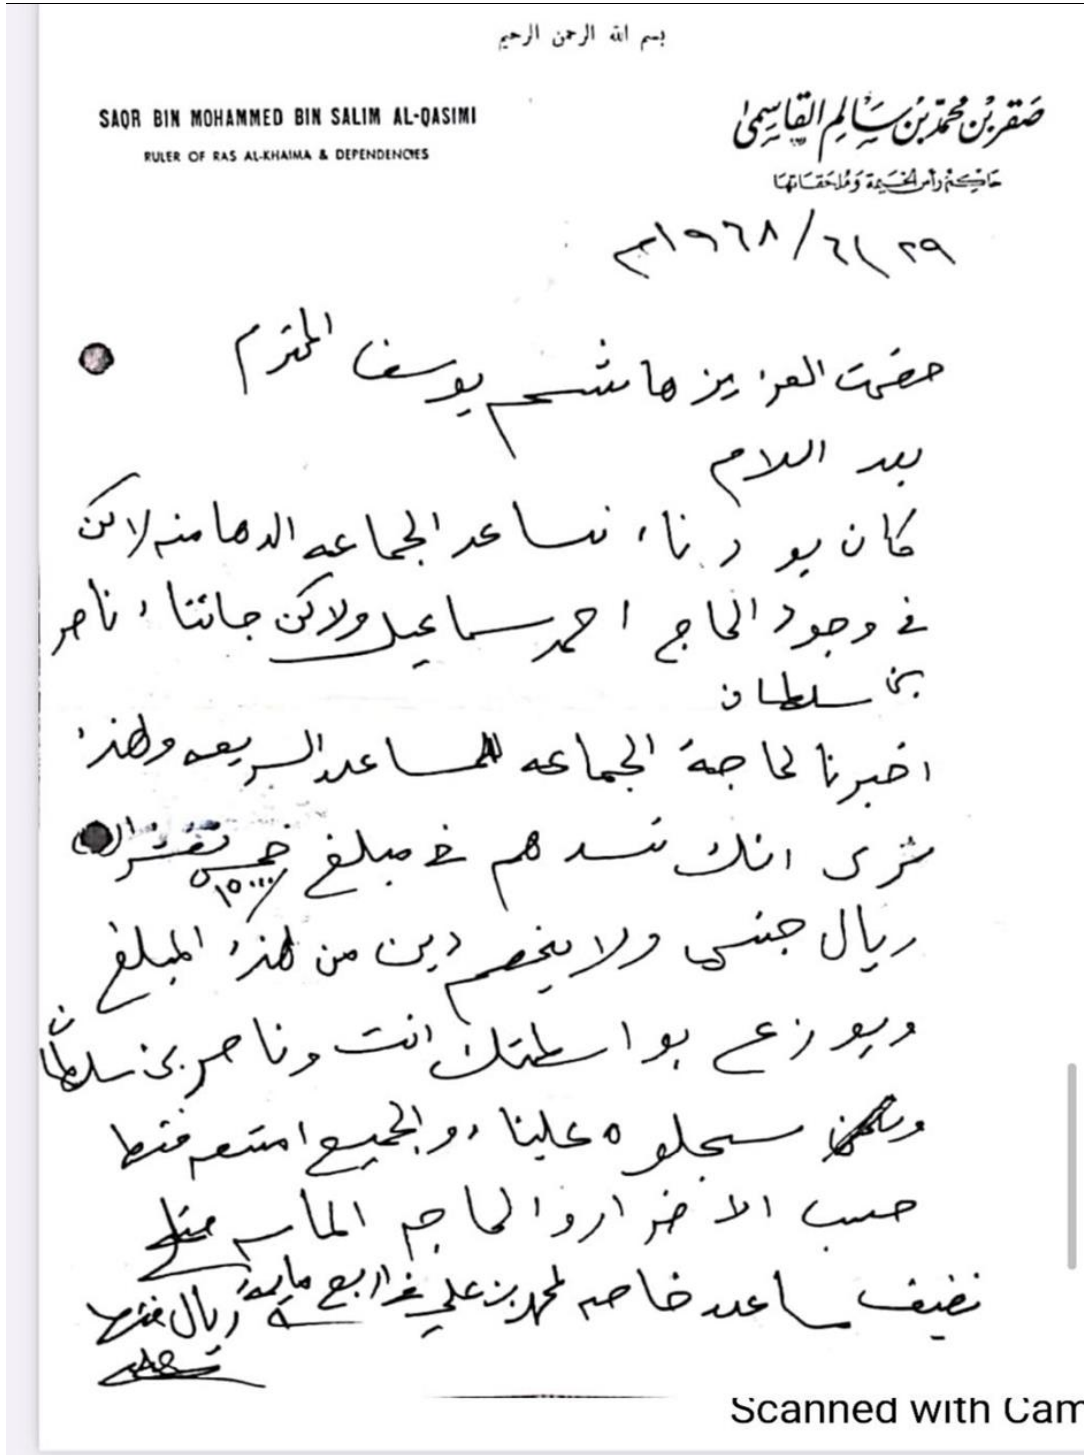 بسم الله الرحمن الرحيم
SAQR BIN MOHAMMED BIN SALIM AL-QASIMI
صقر بن محمد بن سالم القاسمي
RULER OF RAS AL-KHAIMA & DEPENDENCIES
حاكم رأس الخيمة وملحقاتها
٢٩/٦/١٩٦٨م
حضرت العزيز هاشم يوسف المحترم
بعد السلام
كان بودنا نساعد الجماعه الدهامنه لاكن
في وجود الحاج احمد سماعيل ولاكن جائتنا ناصر
بن سلطان
اخبرنا لحاجة الجماعه للمساعده السريعه ولهذا
نرى انك تسدهم في مبلغ خمستعشر الف
١٥٠٠٠/
ريال جنسي ولا يخصم دين من هذا المبلغ
ويوزع بواسطتك انت وناصر بن سلطان
سجلوه علينا والجميع فقط
حسب الاضرار والحاجه الماسه
نضيف ساعده خاصه لمحمد بن علي اربع مايه ريال فقط
Scanned with Cam